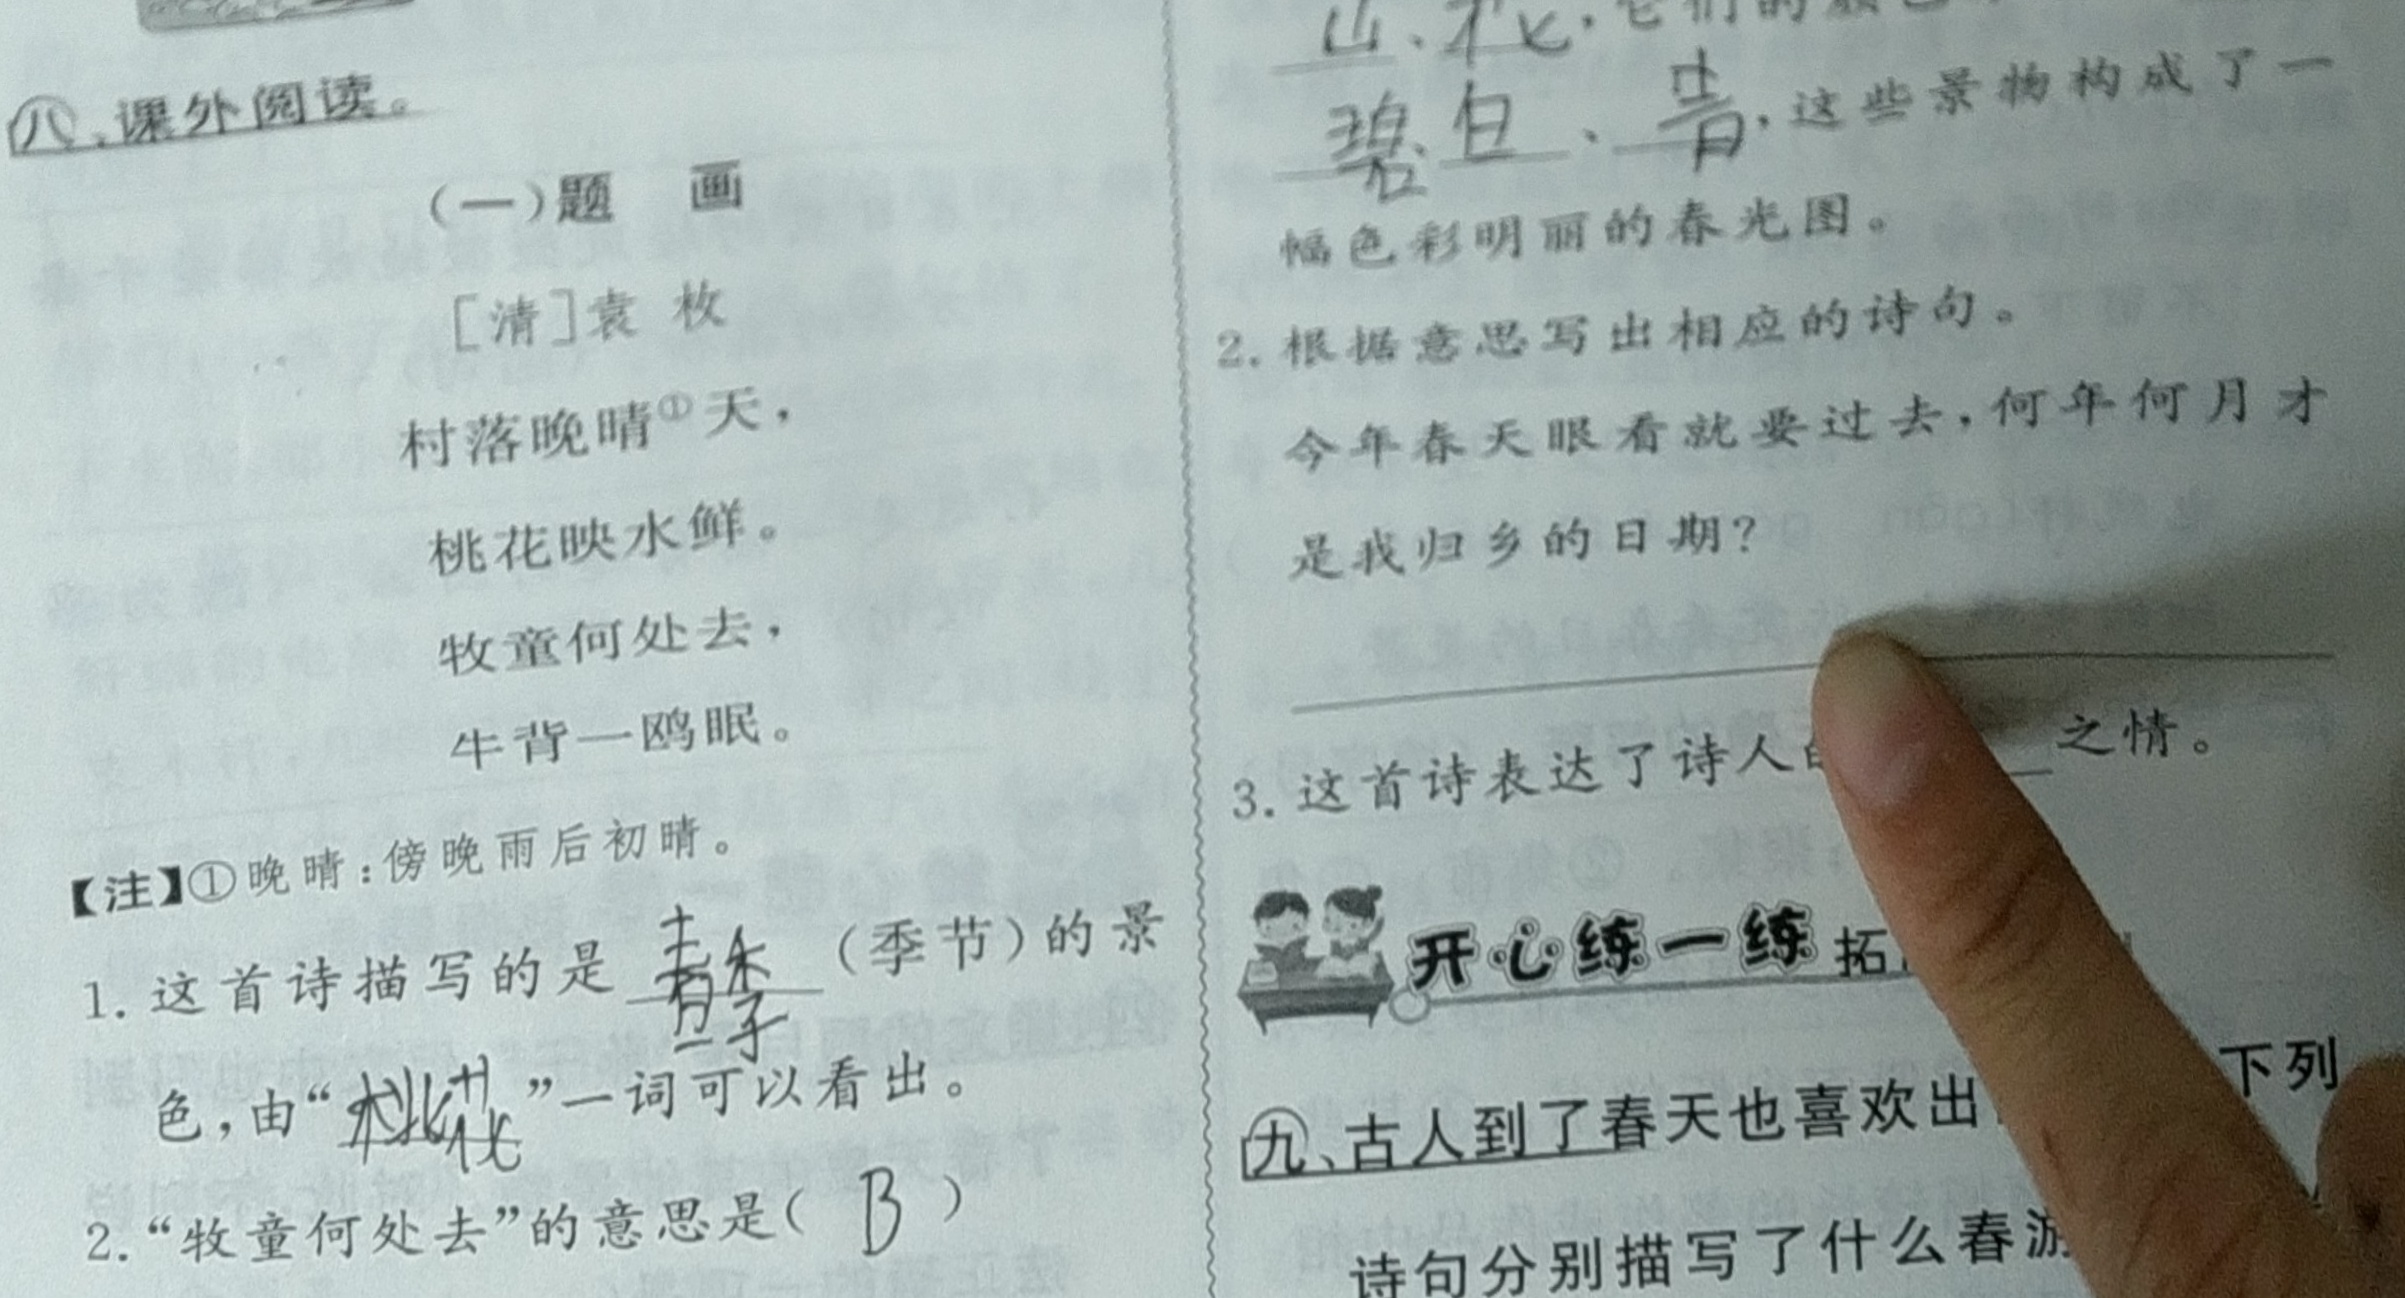 八、课外阅读。
(一)题 画
[清]袁 枚
村落晚晴①天,
桃花映水鲜。
牧童何处去,
牛背一鸥眠。
【注】①晚晴:傍晚雨后初晴。
1. 这首诗描写的是春季(季节)的景
色,由“桃花”一词可以看出。
2.“牧童何处去”的意思是( B )
山、花,它们的颜色
碧、白、青,这些景物构成了一
幅色彩明丽的春光图。
2. 根据意思写出相应的诗句。
今年春天眼看就要过去,何年何月才
是我归乡的日期?
3. 这首诗表达了诗人 之情。
开心练一练 拓
九、古人到了春天也喜欢出 下列
诗句分别描写了什么春游